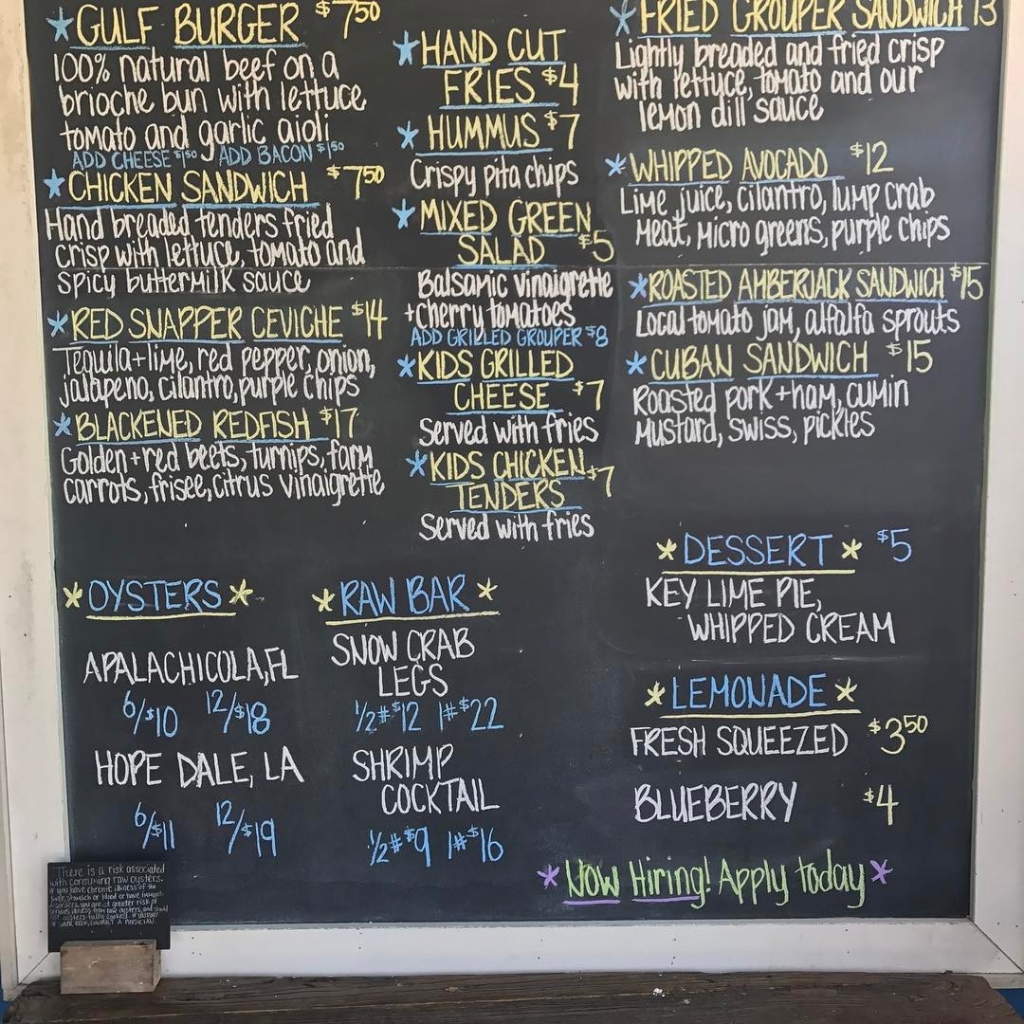 GULF BURGER $7.50
100% natural beef on a
brioche bun with lettuce
tomato and garlic aioli
ADD CHEESE $1.50 ADD BACON $1.50
CHICKEN SANDWICH $7.50
Hand breaded tenders fried
crisp with lettuce, tomato and
spicy buttermilk sauce
RED SNAPPER CEVICHE $14
Tequila + lime, red pepper, onion,
jalapeno, cilantro, purple chips
BLACKENED REDFISH $17
Golden + red beets, turnips, farm
carrots, frisee, citrus vinaigrette
HAND CUT
FRIES $4
HUMMUS $7
Crispy pita chips
MIXED GREEN
SALAD $5
Balsamic vinaigrette
+ cherry tomatoes
ADD GRILLED GROUPER $8
KIDS GRILLED
CHEESE $7
Served with fries
KIDS CHICKEN $7
TENDERS
Served with fries
FRIED GROUPER SANDWICH 13
Lightly breaded and fried crisp
with lettuce, tomato and our
lemon dill sauce
WHIPPED AVOCADO $12
Lime juice, cilantro, lump crab
meat, micro greens, purple chips
ROASTED AMBERJACK SANDWICH $15
Local tomato jam, alfalfa sprouts
CUBAN SANDWICH $15
Roasted pork + ham, cumin
mustard, swiss, pickles
OYSTERS
APALACHICOLA, FL
6/$10 12/$18
HOPE DALE, LA
6/$11 12/$19
RAW BAR
SNOW CRAB
LEGS
1/2# $12 1# $22
SHRIMP
COCKTAIL
1/2# $9 1# $16
DESSERT $5
KEY LIME PIE,
WHIPPED CREAM
LEMONADE
FRESH SQUEEZED $3.50
BLUEBERRY $4
Now Hiring! Apply today
There is a risk associated
with consuming raw oysters.
if you have chronic illness of the
liver, stomach or blood or have